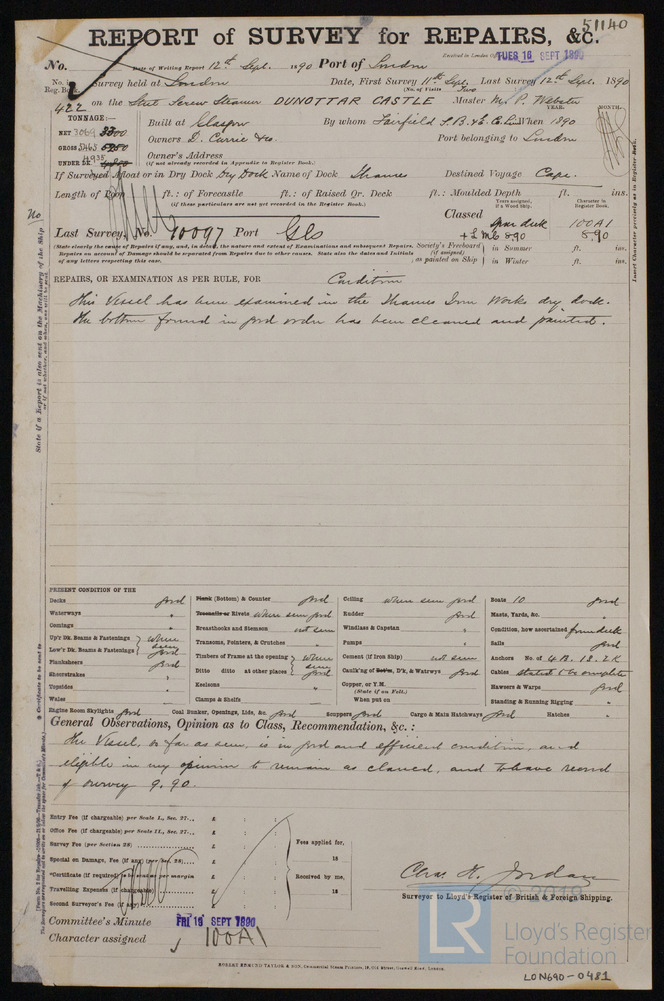 51140
REPORT of SURVEY for REPAIRS, &c.
No. State of Writing Report 12th Sept. 1890 Port of London Received in London Office TUES 16 SEPT 1890
No. in Reg. Book. Survey held at London Date, First Survey 11th Sept. Last Survey 12th Sept. 1890
(No. of Visits Two
422 on the Steel Screw Steamer DUNOTTAR CASTLE Master Mr P. Webster
TONNAGE:— YEAR. MONTH.
NET 3069 3300 Built at Glasgow By whom Fairfield S.B. & E. Co. Ld When 1890
GROSS 5465 5250 Owners D. Currie & Co. Port belonging to London
UNDER DK. 4935 Owner's Address
(if not already recorded in Appendix to Register Book.)
If Surveyed Afloat or in Dry Dock Dry Dock Name of Dock Thames Destined Voyage Cape.
Length of Poop ft.: of Forecastle ft.: of Raised Qr. Deck ft.: Moulded Depth ft. ins.
(if these particulars are not yet recorded in the Register Book.)
Years assigned, if a Wood Ship. Character in Register Book.
Classed Spar deck 100A1
Last Survey, No. 10097 Port Gls + LMC 8.90 8.90
(State clearly the cause of Repairs, if any, and, in detail, the nature and extent of Examinations and subsequent Repairs.
Repairs on account of Damage should be separated from Repairs due to other causes. State also the dates and Initials
of any letters respecting this case.
Society's Freeboard (if assigned) as painted on Ship
in Summer ft. ins.
in Winter ft. ins.
REPAIRS, OR EXAMINATION AS PER RULE, FOR Condition
This Vessel has been examined in the Thames Iron Works dry dock.
The bottom found in good order has been cleaned and painted.
No
State if a Report is also sent on the Machinery of the Ship
or if not whether, and when, one will be sent.
Insert Character precisely as in Register Book.
PRESENT CONDITION OF THE
Decks good
Waterways "
Comings "
Up'r Dk. Beams & Fastenings where seen good
Low'r Dk. Beams & Fastenings
Planksheers good
Sheerstrakes "
Topsides "
Wales "
Engine Room Skylights good
Plank (Bottom) & Counter good
Treenails or Rivets where seen good
Breasthooks and Stemson not seen
Transoms, Pointers, & Crutches "
Timbers of Frame at the opening where seen good
Ditto ditto at other places
Keelsons "
Clamps & Shelfs "
Coal Bunker, Openings, Lids, &c. good Scuppers good
Ceiling where seen good
Rudder good
Windlass & Capstan "
Pumps "
Cement (if Iron Ship) not seen
Caulk'ng of Bot'm, D'k, & Watrways good
Copper, or Y.M.
(State if on Felt.)
When put on
Cargo & Main Hatchways good Hatches "
Boats 10 good
Masts, Yards, &c. "
Condition, how ascertained from deck
Sails good
Anchors No. of 4B. 1S. 2K
Cables stated to be complete
Hawsers & Warps good
Standing & Running Rigging "
General Observations, Opinion as to Class, Recommendation, &c. :
The Vessel, so far as seen, is in good and efficient condition, and
eligible in my opinion to remain as classed, and to have record
of survey 9.90.
Entry Fee (if chargeable) per Scale I., Sec. 27... £ : :
Office Fee (if chargeable) per Scale II., Sec. 27... £ : :
Survey Fee (per Section 28) £ : :
Special on Damage, Fee (if any) (per Sec. 28) £ : :
*Certificate (if required) to be sent as per margin £ : :
Travelling Expenses (if chargeable) £ : :
Second Surveyor's Fee (if any) £ : :
Fees applied for,
18
Received by me,
18
Chas. H. Jordan
Surveyor to Lloyd's Register of British & Foreign Shipping.
Committee's Minute FRI 19 SEPT 1890
Character assigned 100A1
© 2019
LR
Lloyd's Register
Foundation
ROBERT EDMUND TAYLOR & SON, Commercial Steam Printers, 19, Old Street, Goswell Road, London.
LON690-0481